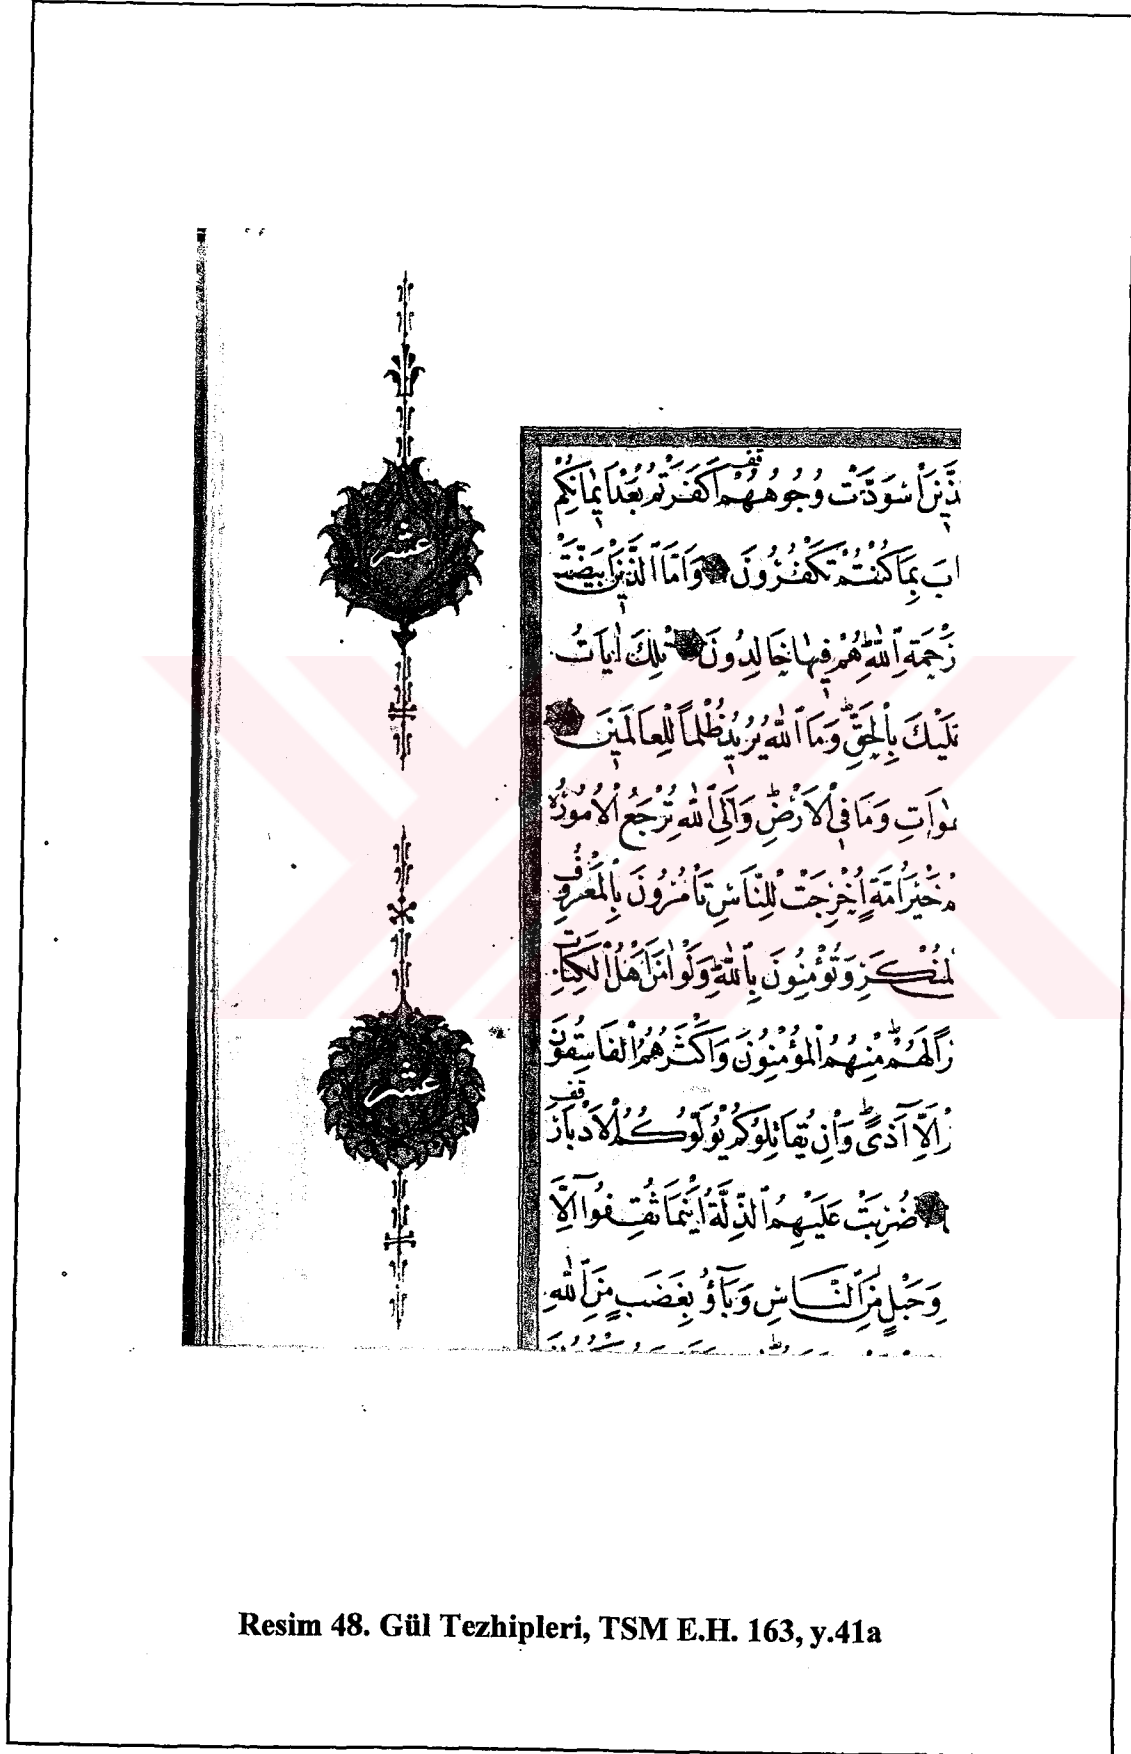 عشر
عشر
ذين اسودت وجوههم اكفرتم بعد ايمانكم
اب بما كنتم تكفرون واما الذين ابيضت
رحمة الله هم فيها خالدون تلك ايات
عليك بالحق وما الله يريد ظلما للعالمين
موات وما في الارض والى الله ترجع الامور
خير امة اخرجت للناس تامرون بالمعروف
المنكر وتؤمنون بالله ولو امن اهل الكتاب
را لهم منهم المؤمنون واكثرهم الفاسقون
الا اذى وان يقاتلوكم يولوكم الادبار
ضربت عليهم الذلة اينما ثقفوا الا
وحبل من الناس وباؤ بغضب من الله
Resim 48. Gül Tezhipleri, TSM E.H. 163, y.41a